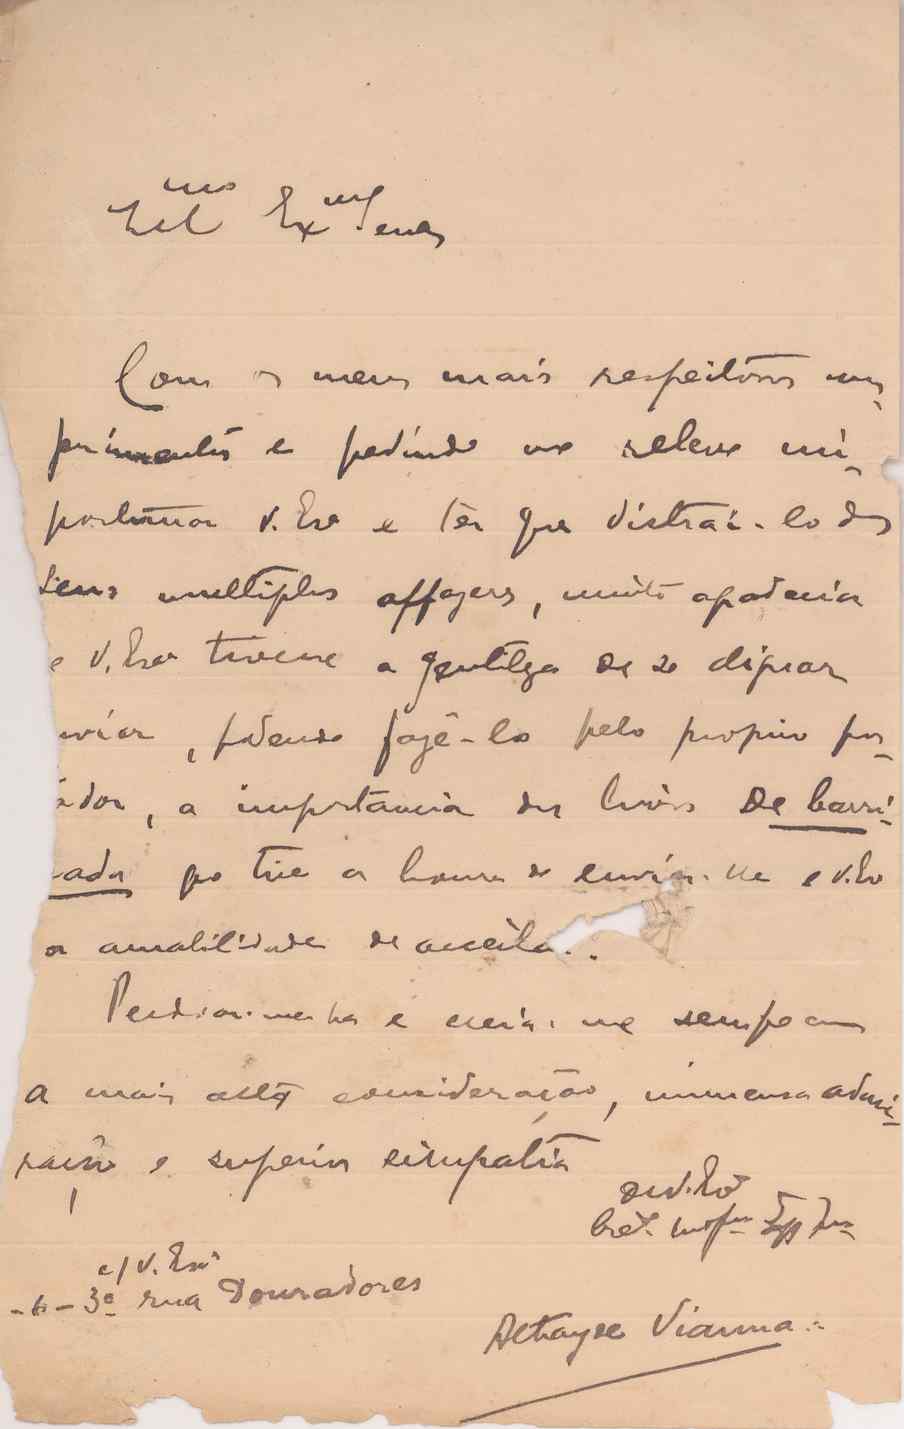 Ill mo Ex mo Senr
Com os meus mais respeitosos cum-
primentos e pedindo me releve im-
portunar V. Exa e ter que distrai-lo dos
seus multiplos affazeres, muito agradeceria
e V. Exa tivesse a gentileza de se dignar
nviar, podendo fazê-lo pelo proprio por-
tador, a importancia dos livros De barri-
cada que tive a honra de enviar-lhe e V. Exa
a amabilidade de aceitar.
Perdoar-me-ha e creia-me sempre com
a mais alta consideração, immensa admi-
ração e superior simpatia
de V. Exa
c/ V. Exa
3º rua Douradores
Athayde Vianna